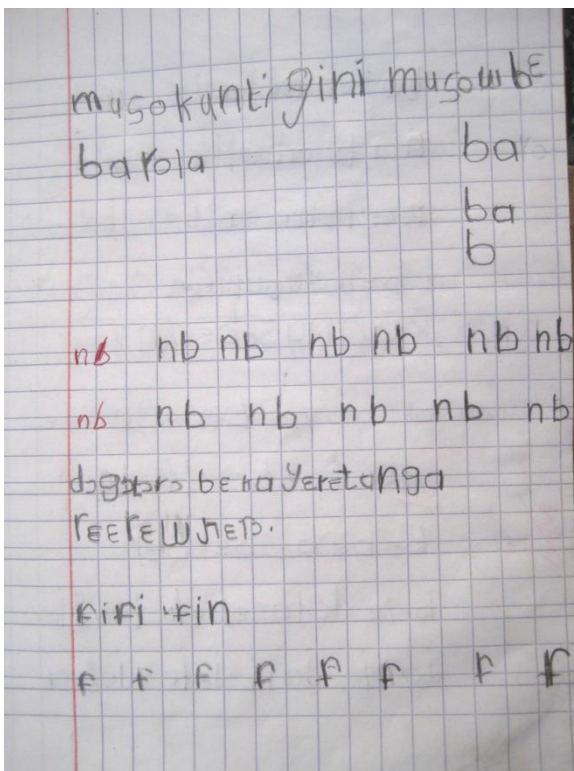 musokunti gini musow bɛ
barola ba
ba
b
nb nb nb nb nb nb nb
nb nb nb nb nb nb
bɛ ka yeretanga
fifi fin
f f f f f f f f